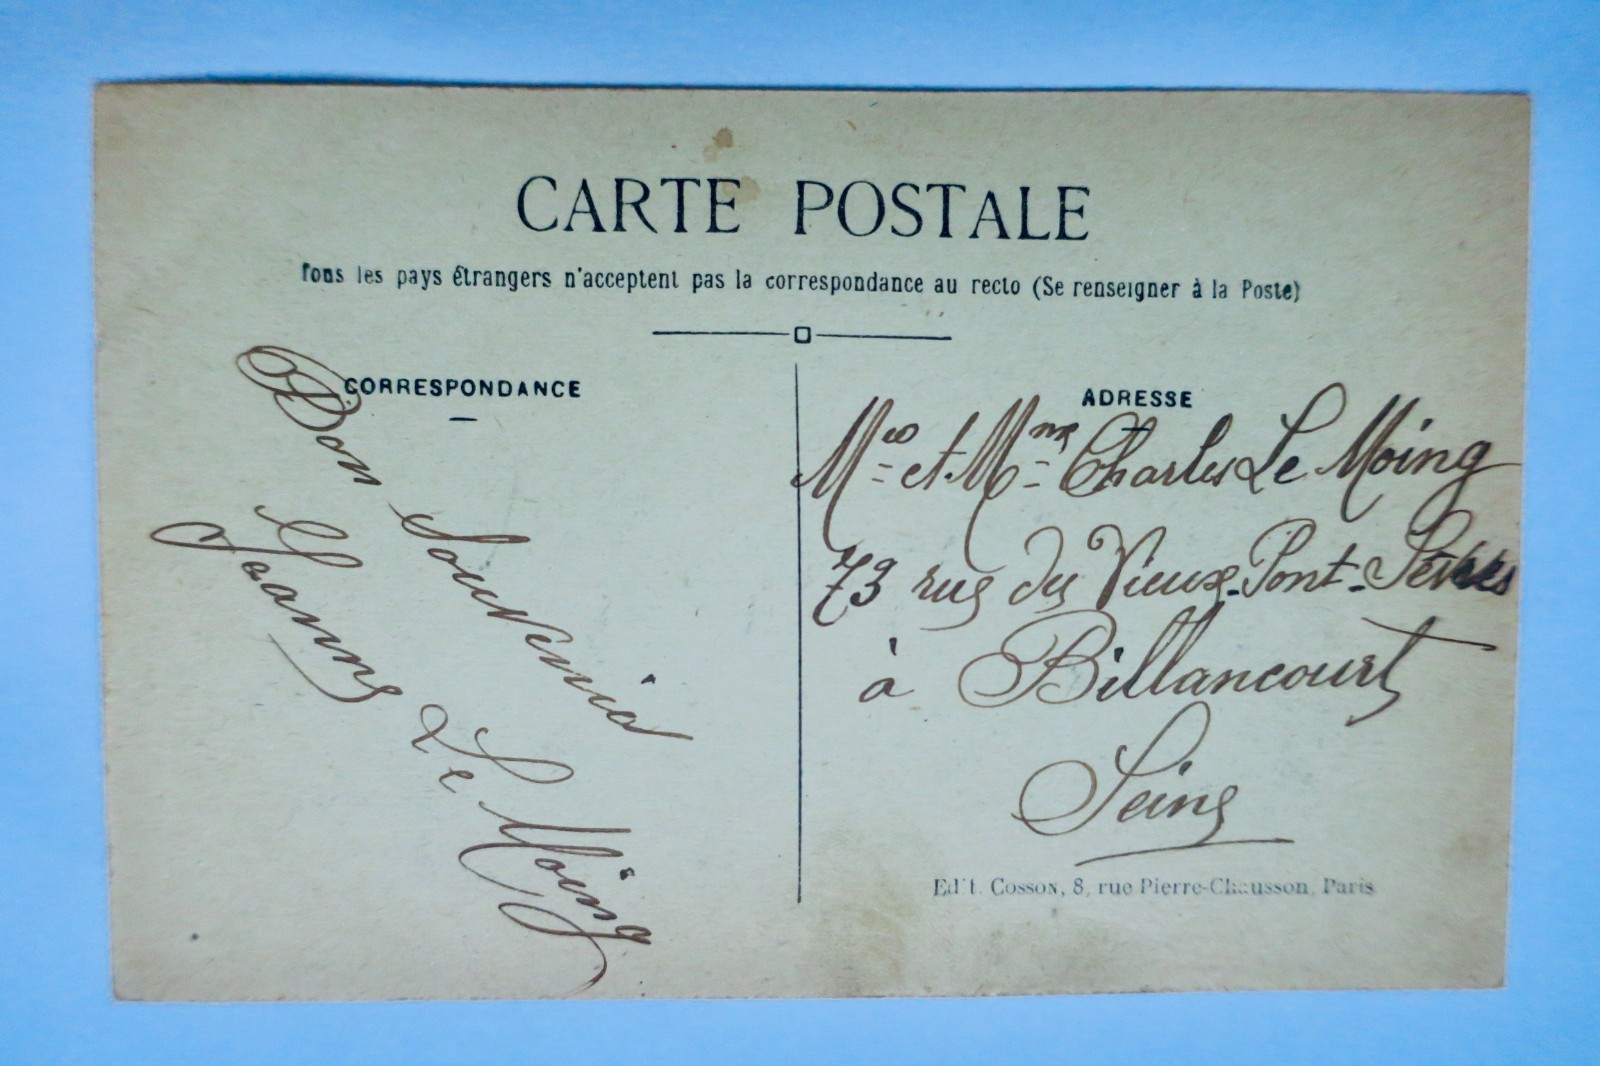 CARTE POSTALE
Tous les pays étrangers n'acceptent pas la correspondance au recto (Se renseigner à la Poste)
CORRESPONDANCE
Bon Souvenir
Jeanne Le Moing
ADRESSE
Mr et Mme Charles Le Moing
73 rue du Vieux-Pont-Sèvres
à Billancourt
Seine
Edit. Cosson, 8, rue Pierre-Chausson, Paris